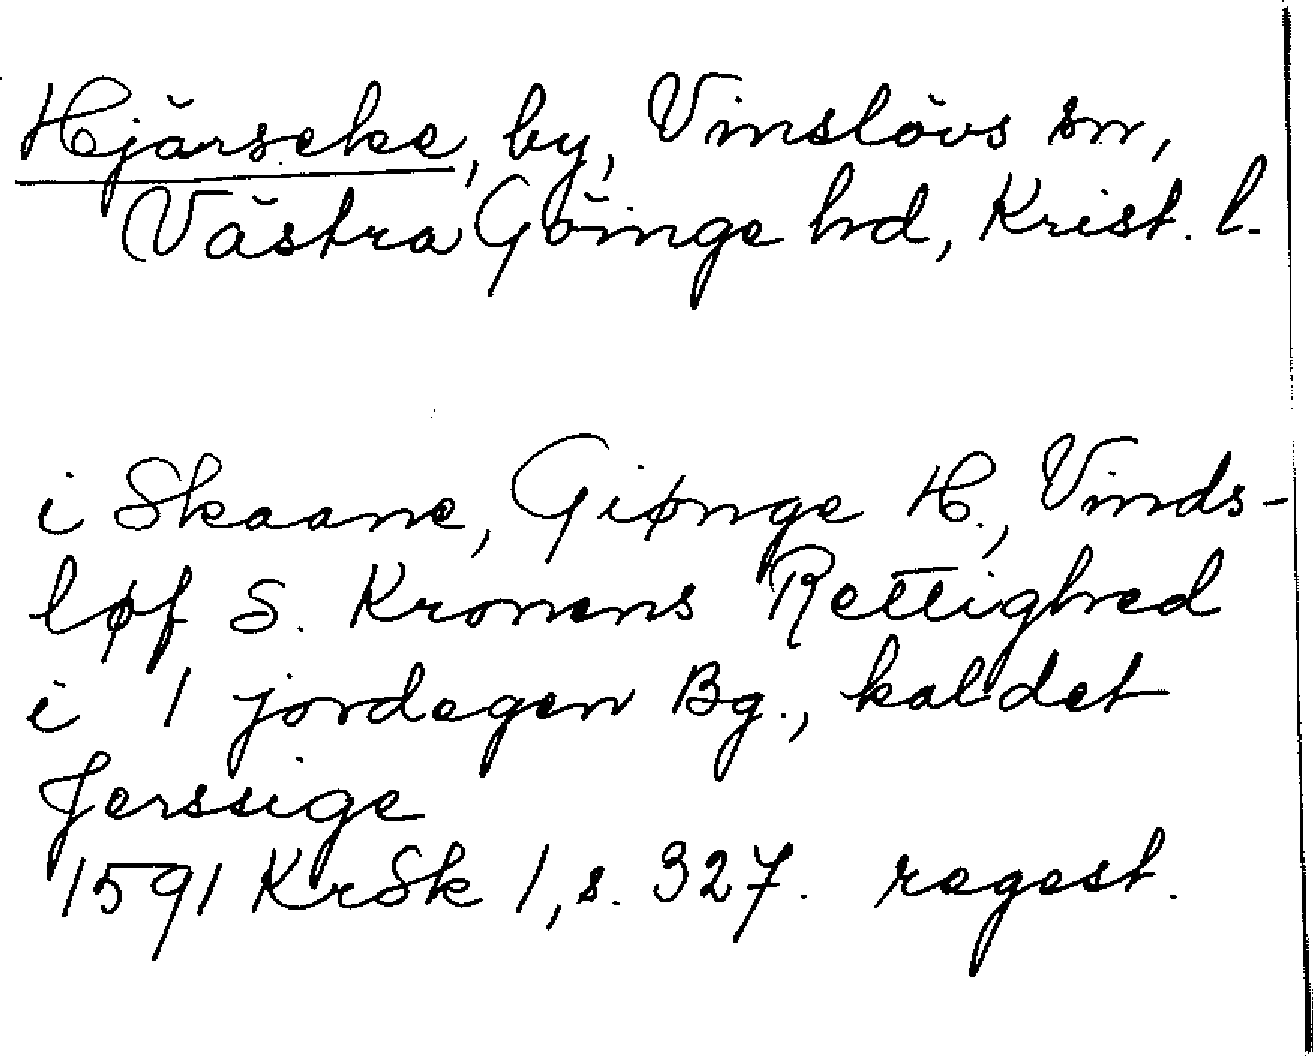 Hjärseke, by, Vinslövs sn,
Västra Göinge hd, Krist. l.
i Skaane, Giønge H., Vinds-
løf S. Kronens Rettighed
i 1 jordegen Bg., kaldet
Jerssige
1591 KrSk 1, s. 327. regest.